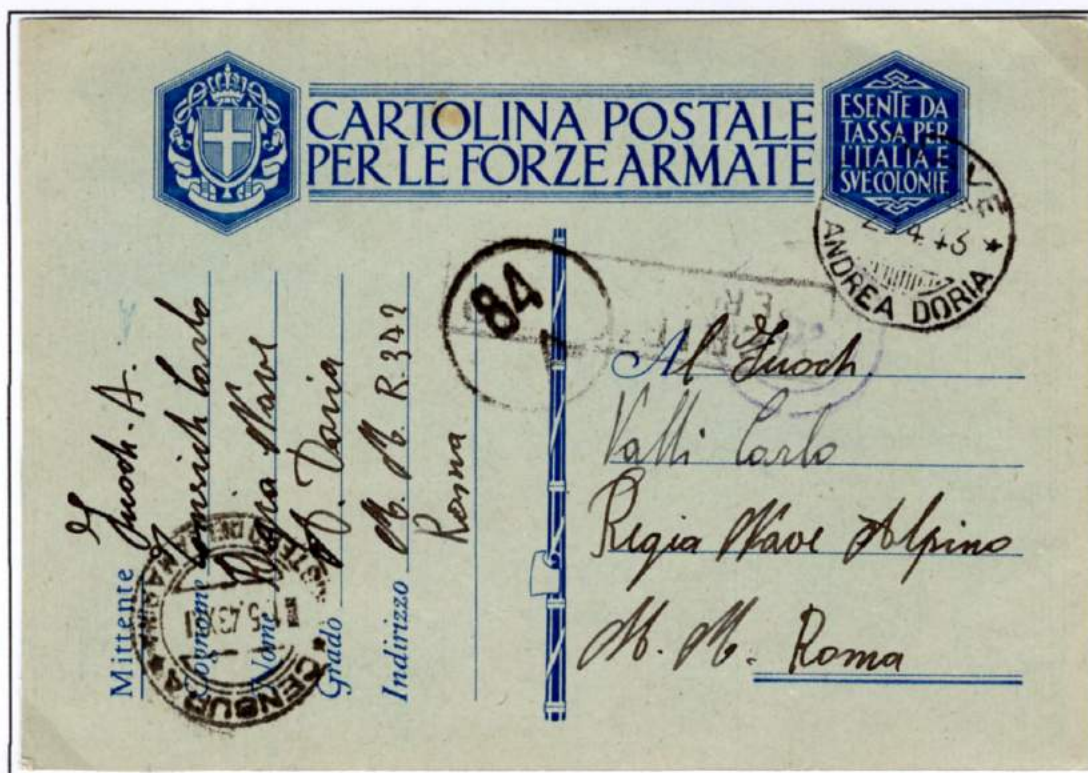 CARTOLINA POSTALE
PER LE FORZE ARMATE
ESENTE DA
TASSA PER
L'ITALIA E
SVE COLONIE
ANDREA DORIA *
84
Al Fuoch.
Valli Carlo
Regia Nave Alpino
M. M. Roma
Mittente Fuoch. A.
Cognome Carlo
Nome Regia Nave
Grado A. Doria
Indirizzo M. M. R. 342
Roma
* CENSURA *
MARINA